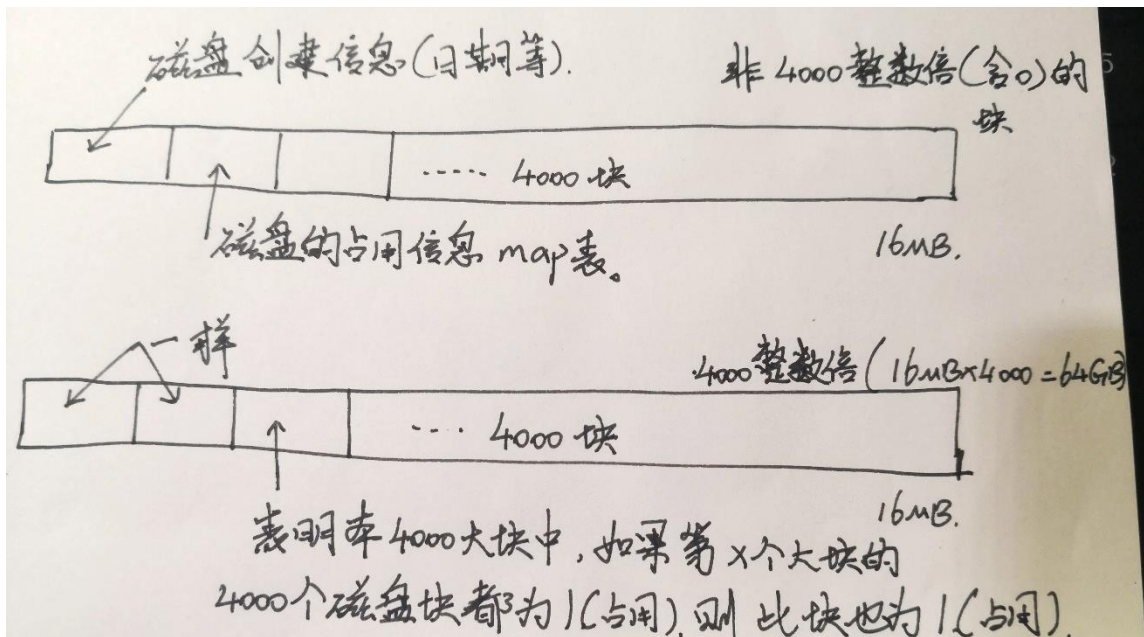 磁盘创建信息(日期等).
非4000整数倍(含0)的
块
..... 4000块
磁盘的占用信息 map表。
16MB.
一样
4000整数倍(16MB×4000=64GB)
.... 4000块
16MB.
表明本4000大块中,如果第x个大块的
4000个磁盘块都为1(占用).则此块也为1(占用)